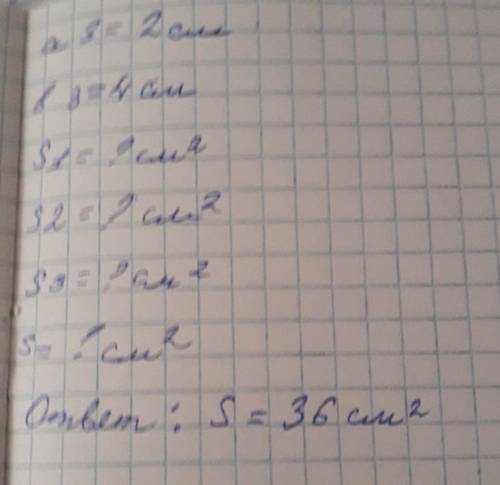 a 3 = 2 см
b 3 = 4 см
S1 = ? см²
S2 = ? см²
S3 = ? см²
S = ? см²
Ответ: S = 36 см²